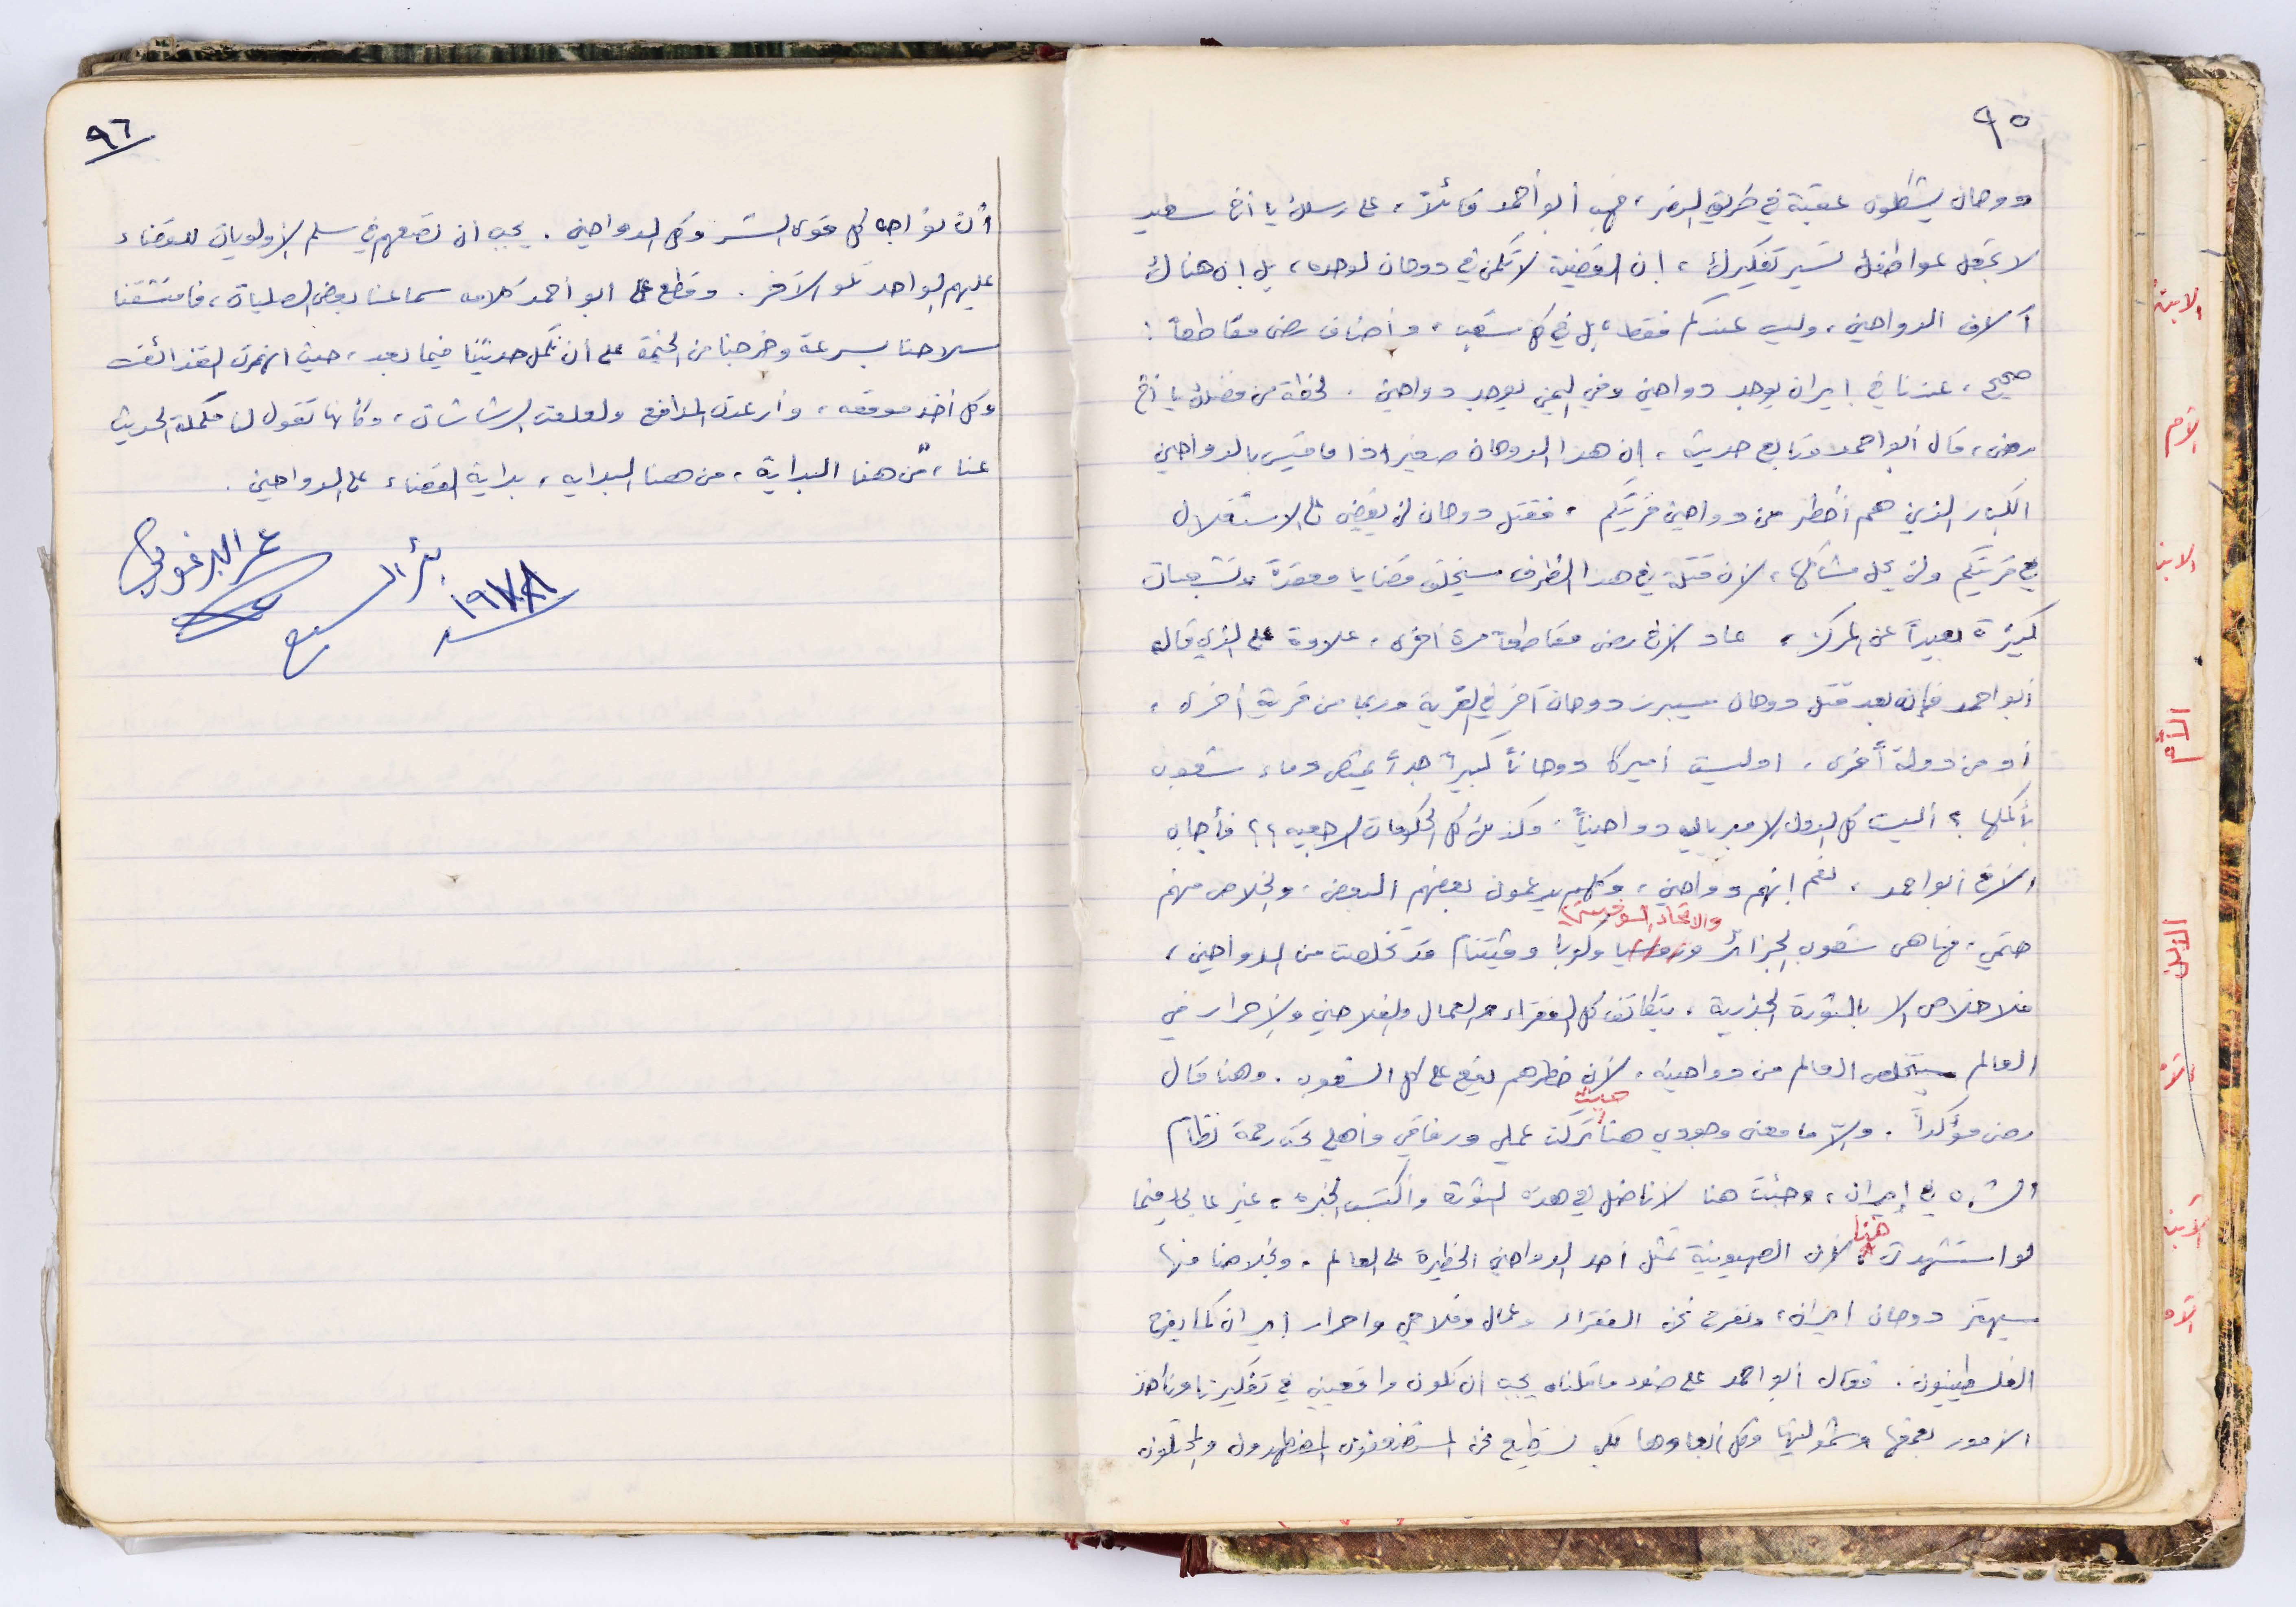 ٩٥
دوحان يشكلون عقبة في طريق النصر، فهب أبو أحمد قائلاً، على رسلك يا أخ سعيد
لا تجعل عواطفك تسير تفكيرك، إن القضية لا تكمن في دوحان لوحده، بل إن هناك
آلاف الدواحين، وليس عندكم فقط، بل في كل شعب، وأضاف رضى مقاطعاً:
صحيح، عندنا في إيران يوجد دواحين وفي اليمن يوجد دواحين. لحظة من فضلك يا أخ
رضى، قال أبو احمد وتابع حديثه، إن هذا الدوحان صغير اذا ما قيس بالدواحين
الكبار الذين هم أخطر من دواحين قريتكم، فقتل دوحان لن يقضي على الاستغلال
في قريتكم ولن يحل مشاكلها، لان قتله في هذا الظرف سيخلق قضايا معقدة وتشعبات
كبيرة بعيداً عن المعركة، عاد الأخ رضى مقاطعاً مرة اخرى، علاوة على الذي قاله
أبو احمد فإن بعد قتل دوحان سيبرز دوحان آخر في القرية وربما من قرية أخرى،
أو من دولة أخرى، اوليست أميركا دوحاناً كبيراً جداً يمتص دماء شعوب
بأكملها؟ أليست كل الدول الامبريالية دواحيناً، وكذلك كل الحكومات الرجعيه؟؟ فأجابه
الأخ أبو احمد، نعم إنهم دواحين، وكلهم يدعمون بعضهم البعض، والخلاص منهم
والاتحاد السوفييتي
حتمي، فها هي شعوب الجزائر وروسيا وكوبا وفيتنام قد تخلصت من الدواحين،
فلا خلاص إلا بالثورة الجذرية، بتكاتف كل الفقراء والعمال والفلاحين والأحرار في
العالم سيتخلص العالم من دواحينه، لأن خطرهم يقع على كل الشعوب. وهنا قال
حيث
رضى مؤكداً. وإلاّ ما معنى وجودي هنا تركت عملي ورفاقي وأهلي تحت رحمة نظام
الشاه في إيران، وجئت هنا لاناضل في هذه الثورة وأكتسب الخبره، غير عابئ فيما
هنا
لو استشهدت، لأن الصهيونية تمثل أحد الدواحين الخطيرة على العالم، وبخلاصنا منها
سيهتز دوحان ايران، ونفرح نحن الفقراء وعمال وفلاحي واحرار إيران كما يفرح
الفلسطينيون. فقال أبو احمد على ضوء ما قلناه يجب ان نكون واقعيين في تفكيرنا ونأخذ
الامور بعمقها وشموليتها وكل أبعادها لكي نستطيع نحن المستضعفون المضطهدون والمحتلون
٩٦
أن نواجه كل قوى الشر وكل الدواحين. يجب ان نضعهم في سلم الأولويات للقضاء
عليهم الواحد تلو الآخر. وقطع على ابو أحمد كلامه سماعنا بعض الصليات، فامتشقنا
سلاحنا بسرعة وخرجنا من الخيمة على أن نكمل حديثنا فيما بعد، حيث انهمرت القذائف
وكل أخذ موقعه، وأرعدت المدافع ولعلعت الرشاشات، وكأنها تقول لنا مكملة الحديث
عنا، من هنا البداية، من هنا البدايه، بداية القضاء على الدواحين.
عمر البرغوثي
بئر السبع
١٩٧٨
الابن
الأم
الابن
الأم
الابن
الأم
الابن
الأم